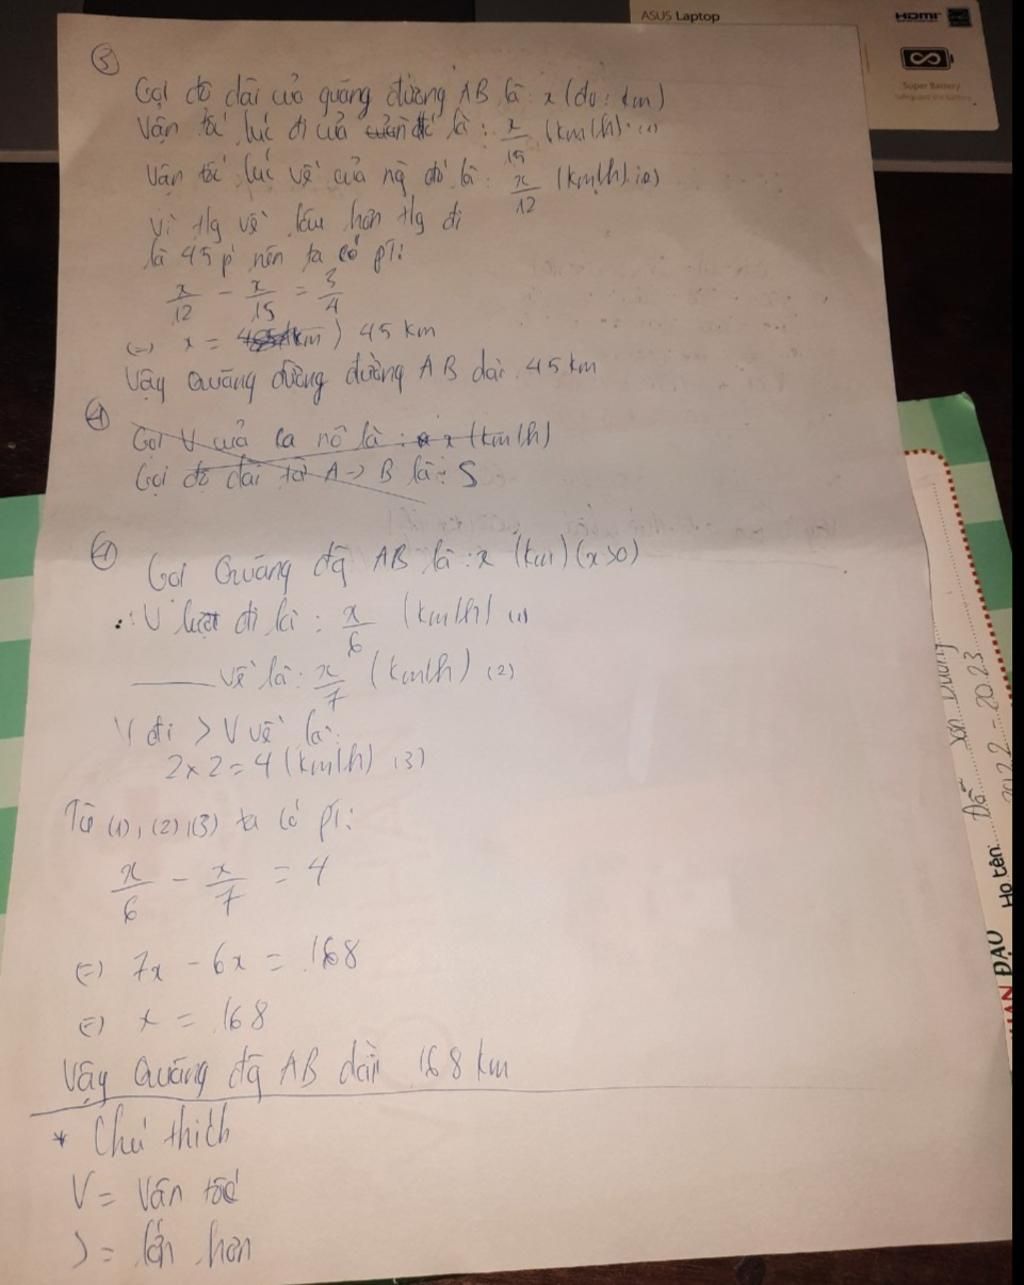 ASUS Laptop
HDMI
Super Battery
③
Gọi độ dài của quãng đường AB là: x (đv: km)
Vận tốc lúc đi của đó là: x/15 (km/h). (1)
Vận tốc lúc về của ng đó là: x/12 (km/h). (2)
Vì tg về lâu hơn tg đi
là 45 p' nên ta có pt:
x/12 - x/15 = 3/4
(=) x = 45 km
Vậy Quãng đường đường AB dài 45 km
④
Gọi V của ca nô là: x (km/h)
Gọi độ dài từ A -> B là: S
④
Gọi Quãng đg AB là: x (km) (x>0)
∴ V lượt đi là: x/6 (km/h) (1)
—— về là: x/7 (km/h) (2)
V đi > V về là:
2x2=4 (km/h) (3)
Từ (1), (2), (3) ta có pt:
x/6 - x/7 = 4
(=) 7x - 6x = 168
(=) x = 168
Vậy Quãng đg AB dài 168 km
* Chú thích
V = Vận tốc
> = lớn hơn
Họ tên: Đỗ
2022 - 2023